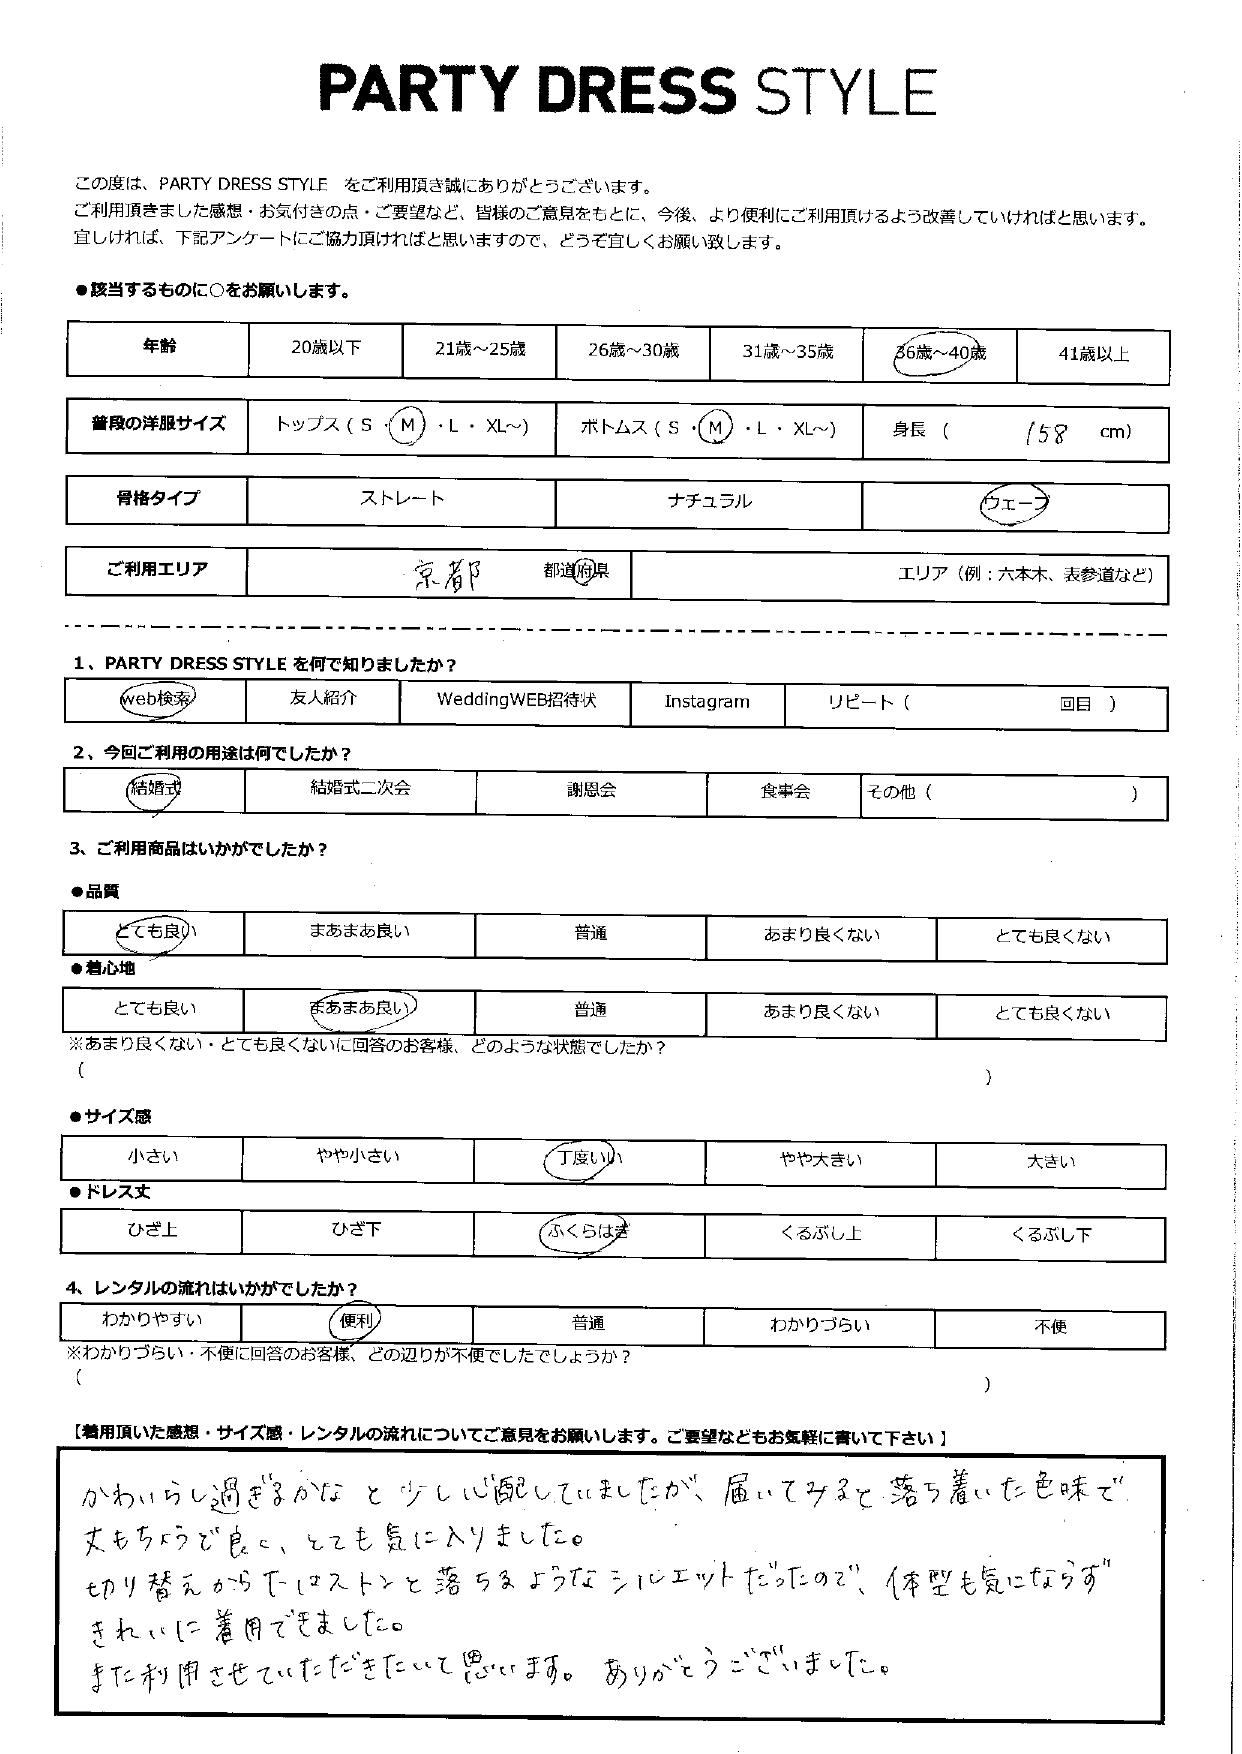 PARTY DRESS STYLE
この度は、PARTY DRESS STYLE をご利用頂き誠にありがとうございます。
ご利用頂きました感想・お気付きの点・ご要望など、皆様のご意見をもとに、今後、より便利にご利用頂けるよう改善していければと思います。
宜しければ、下記アンケートにご協力頂ければと思いますので、どうぞ宜しくお願い致します。
●該当するものに○をお願いします。
年齢 20歳以下 21歳～25歳 26歳～30歳 31歳～35歳 36歳～40歳 41歳以上
普段の洋服サイズ トップス（ S ・ M ・ L ・ XL～） ボトムス（ S ・ M ・ L ・ XL～） 身長（ 158 cm）
骨格タイプ ストレート ナチュラル ウェーブ
ご利用エリア 京都 都道府県 エリア（例：六本木、表参道など）
1、PARTY DRESS STYLE を何で知りましたか？
web検索 友人紹介 WeddingWEB招待状 Instagram リピート（ 回目 ）
2、今回ご利用の用途は何でしたか？
結婚式 結婚式二次会 謝恩会 食事会 その他（ ）
3、ご利用商品はいかがでしたか？
●品質
とても良い まあまあ良い 普通 あまり良くない とても良くない
●着心地
とても良い まあまあ良い 普通 あまり良くない とても良くない
※あまり良くない・とても良くないに回答のお客様、どのような状態でしたか？
（ ）
●サイズ感
小さい やや小さい 丁度いい やや大きい 大きい
●ドレス丈
ひざ上 ひざ下 ふくらはぎ くるぶし上 くるぶし下
4、レンタルの流れはいかがでしたか？
わかりやすい 便利 普通 わかりづらい 不便
※わかりづらい・不便に回答のお客様、どの辺りが不便でしたでしょうか？
（ ）
【着用頂いた感想・サイズ感・レンタルの流れについてご意見をお願いします。ご要望などもお気軽に書いて下さい 】
かわいらし過ぎるかな と 少し心配していましたが、届いてみると 落ち着いた色味で
丈もちょうど良く、とても気に入りました。
切り替えから下はストンと落ちるようなシルエットだったので、体型も気にならず
きれいに着用できました。
また利用させていただきたいと思います。 ありがとうございました。